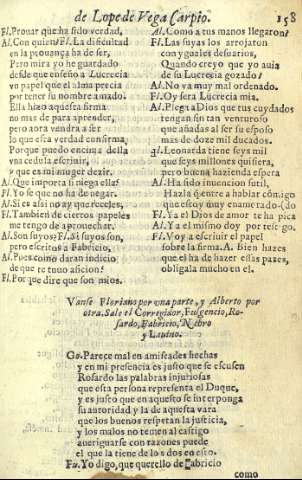 de Lope de Vega Carpio. 158
Fl. Prouar que ha sido verdad,
Al. Con quien? Fl. La dificultad
en la prouança ha de ser,
Pero mira yo he guardado
desde que enseño a Lucrecia
vn papel que el alma precia
por tener su nombre amado.
Ella hizo aquesta firma
no mas de para aprender,
pero aora vendra a ser
lo que essa verdad confirma,
Porque puedo encima della
vna cedula escriuir,
y que es mi muger dezir.
Al. Que importa si niega ella?
Fl. Yo se que no ha de negar.
Al. Si es assi no ay que receles,
Fl. Tambien de ciertos papeles
me tengo de aprouechar.
Al. Son suyos? Fl. Si suyos son,
pero escritos a Fabricio,
Al. Pues como daran indicio
de que te tuuo aficion?
Fl. Por que dire que son mios.
Al. Como a tus manos llegaron?
Fl. Las suyas los arrojaron
con yguales desuarios,
Quando creyo que yo auia
de su Lucrecia gozado?
Al. No va muy mal ordenado.
Fl. Oy sera Lucrecia mia.
Al. Plega a Dios que tus cuydados
tengan sin tan venturoso
que añadas al ser su esposo
mas de doze mil ducados.
Leonarda tiene seys mil
que seys millones quisiera,
pero buena hazienda espera
Al. Ha sido inuencion sutil,
Hazle gente a hablar comigo
que estoy muy enamorado
Fl. Ya el Dios de amor te ha pica
Al. Y a el mismo doy por testigo.
Fl. Voy a escriuir el papel
sobre la firma. A. Bien hazes
que el ha de hazer estas pazes,
obligala mucho en el.
Vanse Floriano por vna parte, y Alberto por
otra. Sale el Corregidor, Fulgencio, Ro-
sardo, Fabricio, Nebro
y Lauino.
Go. Parece mal en amistades hechas
y en mi presencia es justo que se escusen
Rosardo las palabras injuriosas
que esta persona representa el Duque,
y es justo que en aquesto se interponga
su autoridad y la de aquesta vara
que los buenos respetan la justicia,
y los malos no temen al castigo
aueriguarse con razones puede
el que la tiene de los dos en esto.
Fu. Yo digo, que querello de Fabricio
como